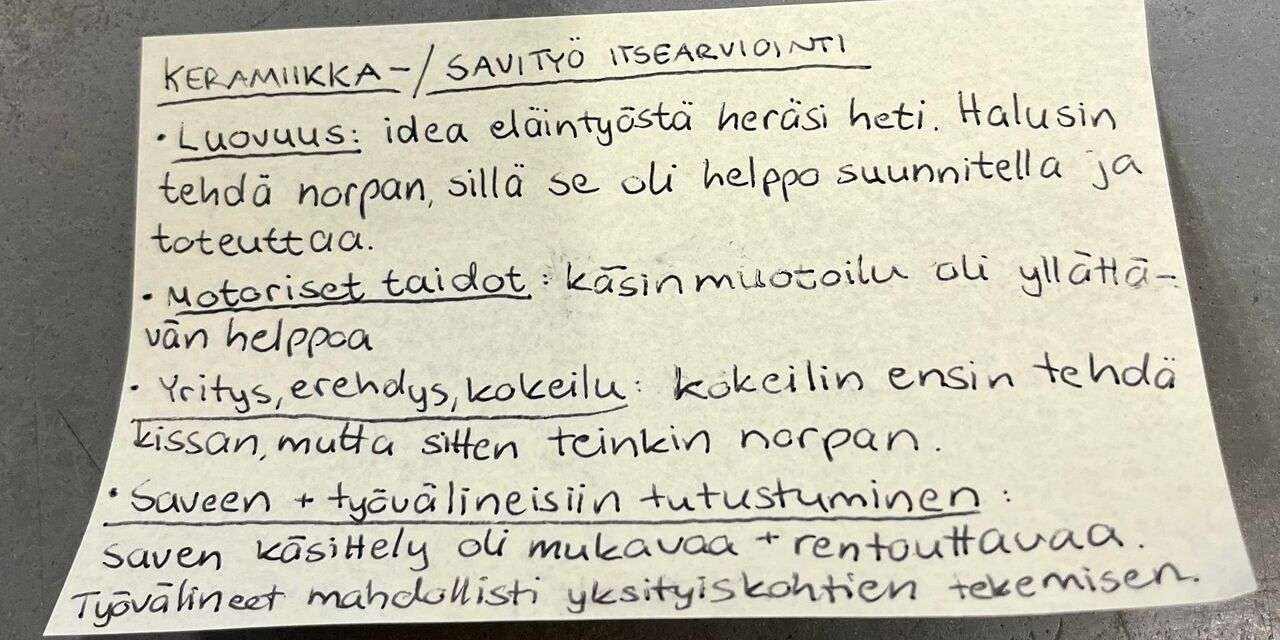 KERAMIIKKA-/SAVITYÖ ITSEARVIOINTI
• Luovuus: idea eläintyöstä heräsi heti. Halusin
tehdä norpan, sillä se oli helppo suunnitella ja
toteuttaa.
• Motoriset taidot: käsinmuotoilu oli yllättä-
vän helppoa
• Yritys, erehdys, kokeilu: kokeilin ensin tehdä
kissan, mutta sitten teinkin norpan.
• Saveen + työvälineisiin tutustuminen:
saven käsittely oli mukavaa + rentouttavaa.
Työvälineet mahdollisti yksityiskohtien tekemisen.